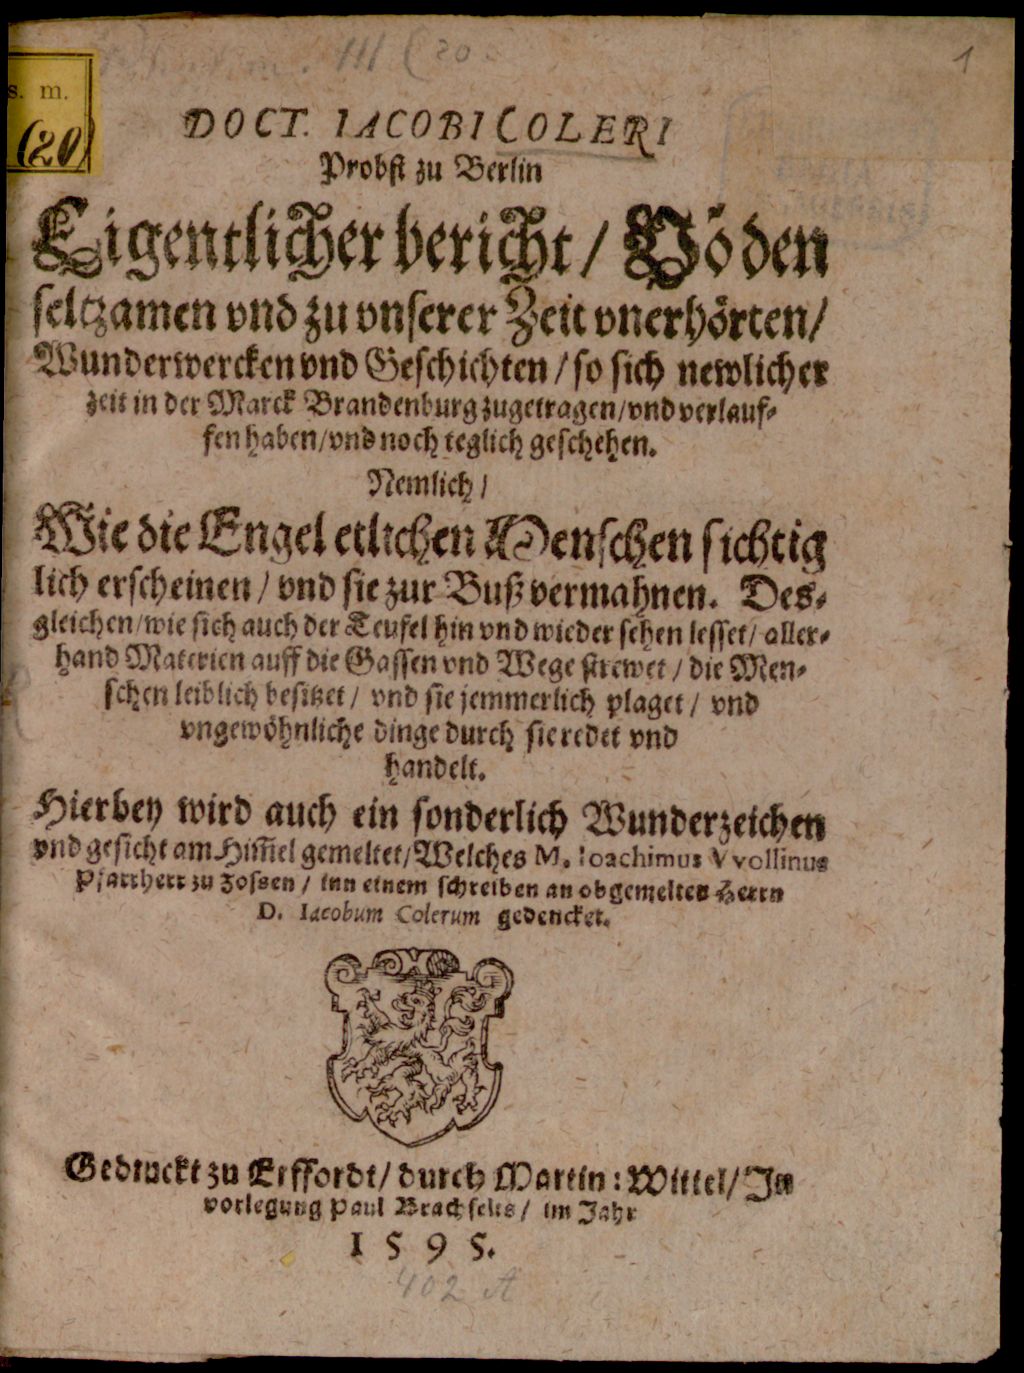 III (20.
1
s. m.
(20)
DOCT. IACOBI COLERI
Probst zu Berlin
Eigentlicher bericht / Võ den
seltzamen vnd zu vnserer Zeit vnerhörten /
Wunderwercken vnd Geschichten / so sich newlicher
zeit in der Marck Brandenburg zugetragen / vnd verlauf-
fen haben / vnd noch teglich geschehen.
Nemlich /
Wie die Engel etlichen Menschen sichtig
lich erscheinen / vnd sie zur Buß vermahnen. Des-
gleichen / wie sich auch der Teufel hin vnd wieder sehen lesset / aller-
hand Materien auff die Gassen vnd Wege strewet / die Men-
schen leiblich besitzet / vnd sie jemmerlich plaget / vnd
vngewöhnliche dinge durch sie redet vnd
handelt.
Hierbey wird auch ein sonderlich Wunderzeichen
vnd gesicht am Him̃el gemeltet / Welches M. Ioachimus VVollinus
Pfarrherr zu Zossen / inn einem schreiben an obgemelten Herrn
D. Iacobum Colerum gedencket.
Gedruckt zu Erffordt / durch Martin: Wittel / In
vorlegung Paul Brachfelts / im Jahr
1595.
402 A